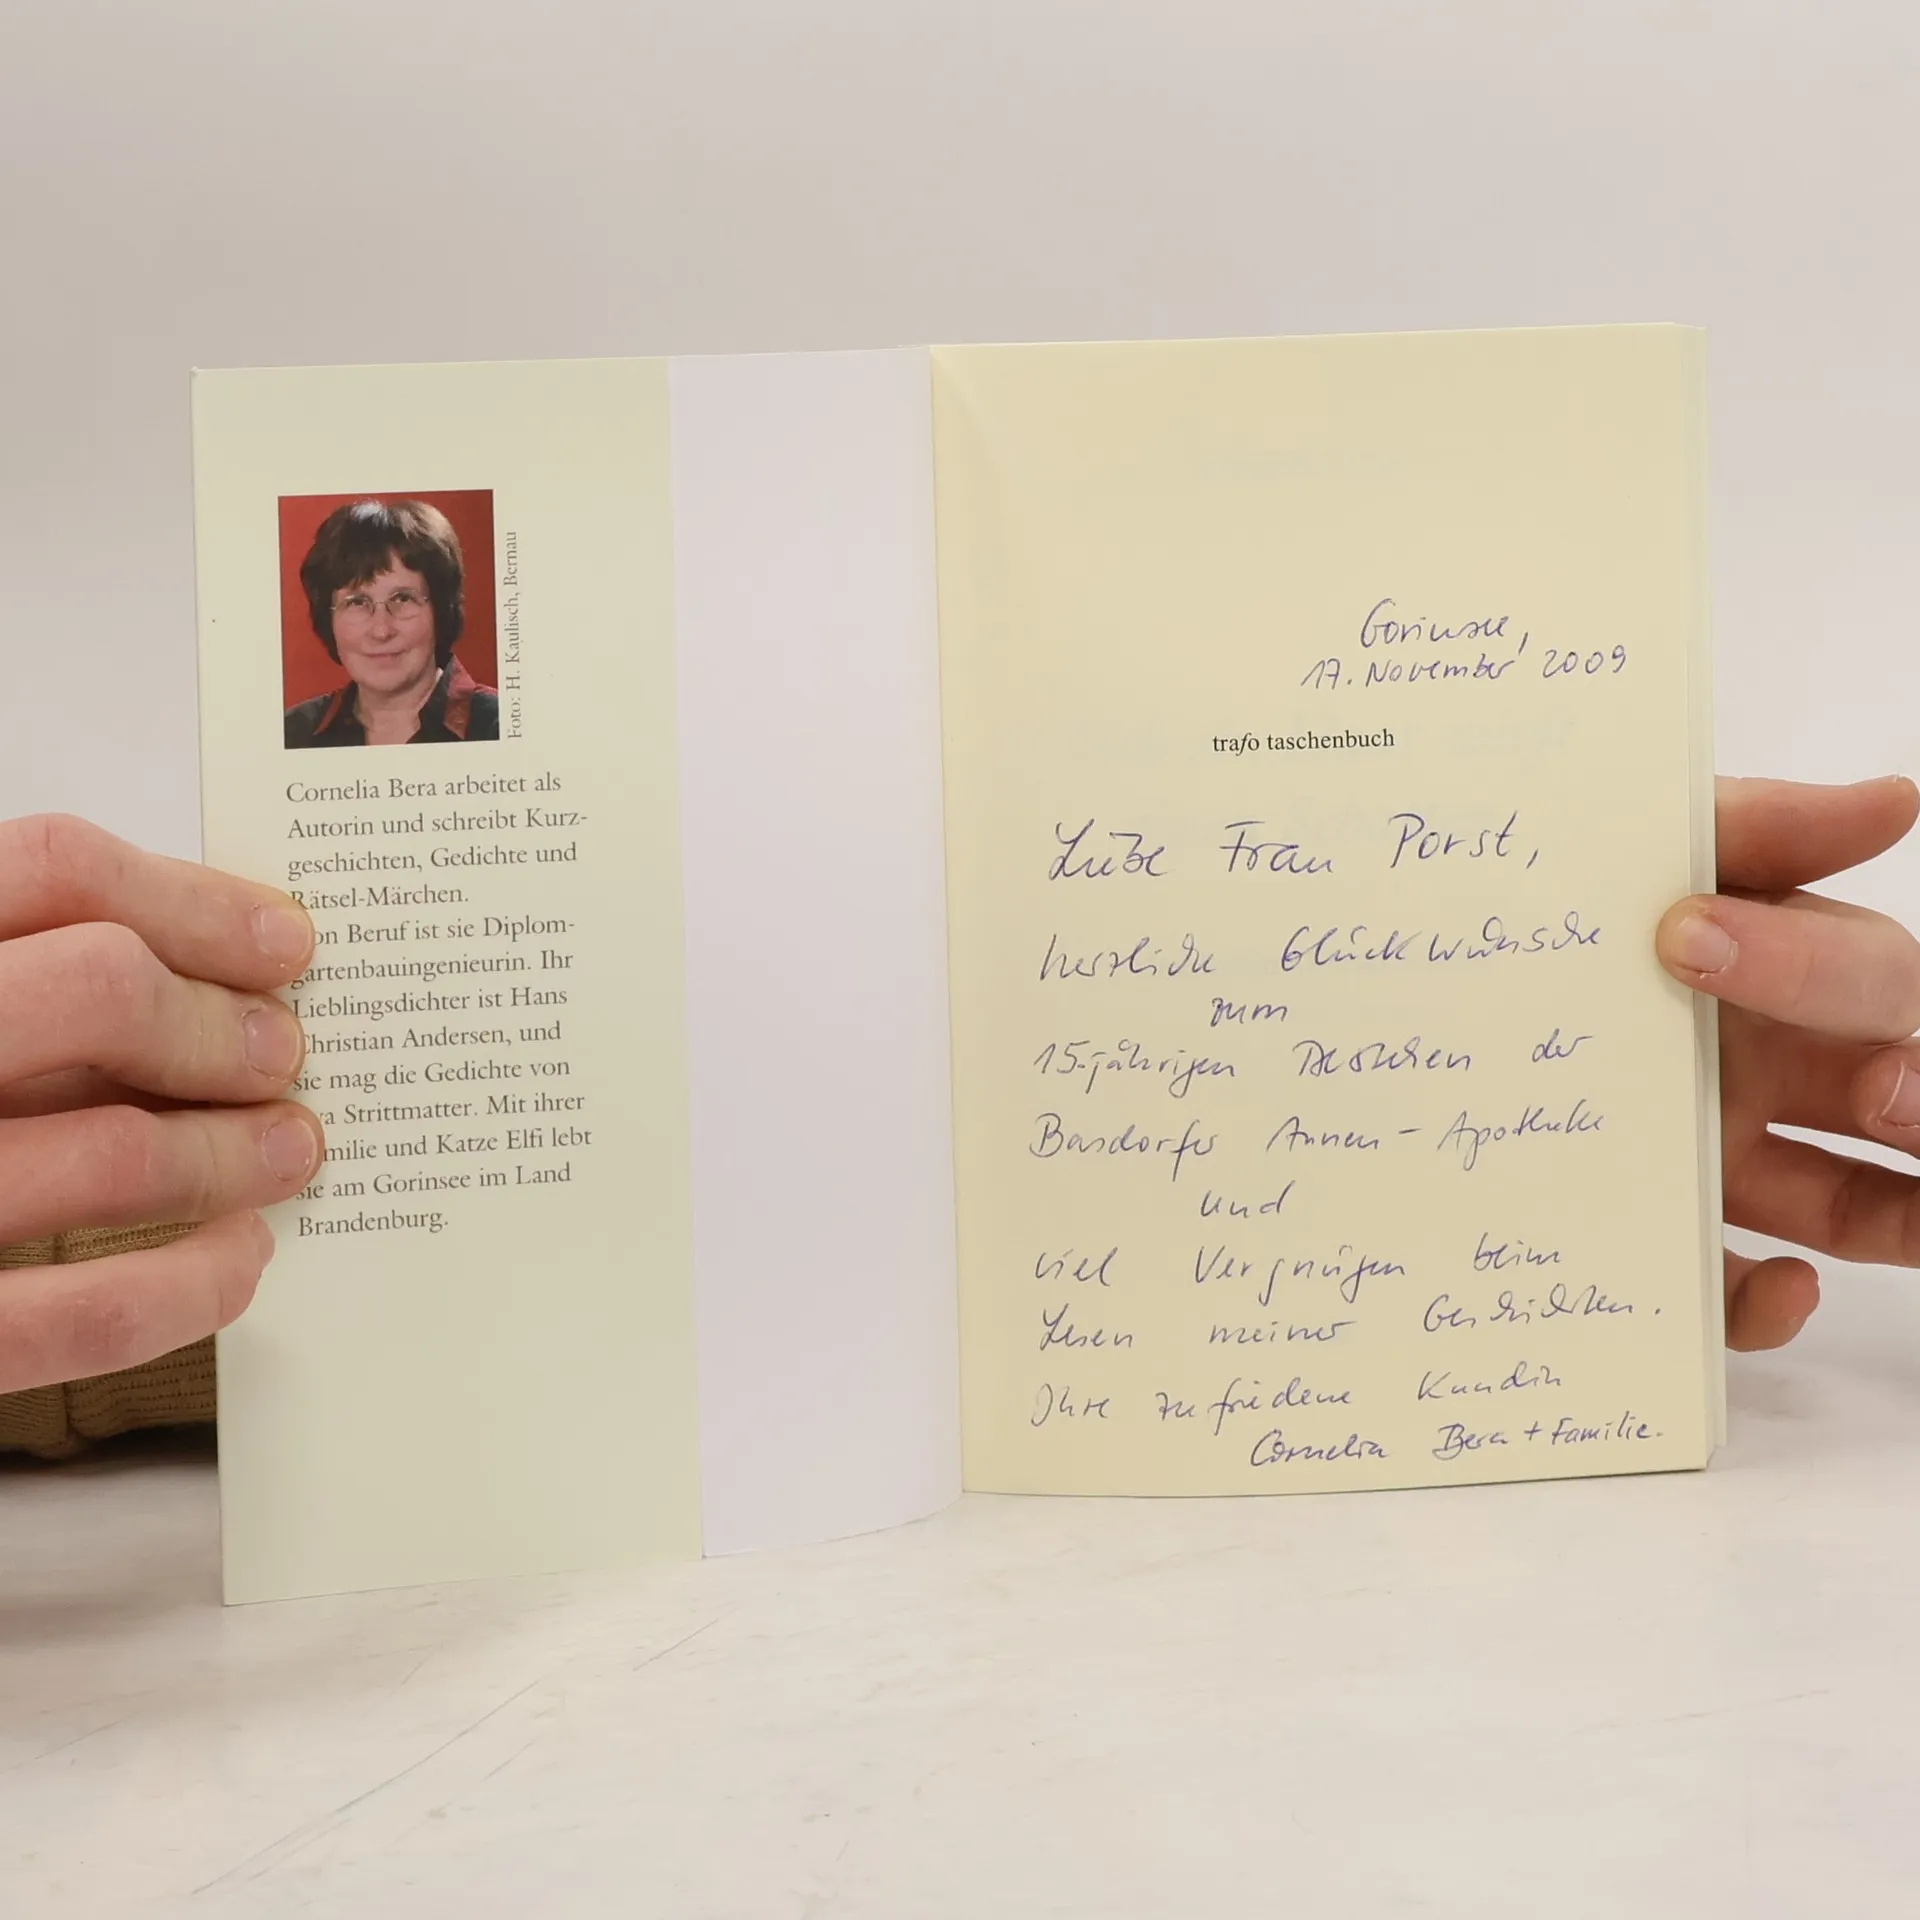 Foto: H. Kaulisch, Bernau
Cornelia Bera arbeitet als
Autorin und schreibt Kurz-
geschichten, Gedichte und
Rätsel-Märchen.
on Beruf ist sie Diplom-
gartenbauingenieurin. Ihr
Lieblingsdichter ist Hans
Christian Andersen, und
sie mag die Gedichte von
va Strittmatter. Mit ihrer
milie und Katze Elfi lebt
sie am Gorinsee im Land
Brandenburg.
Gorinsee,
17. November 2009
trafo taschenbuch
Liebe Frau Porst,
herzliche Glückwünsche
zum
15-jährigen Bestehen der
Basdorfer Annen-Apotheke
und
viel Vergnügen beim
Lesen meiner Geschichten.
Ihre zufriedene Kundin
Cornelia Bera + Familie.